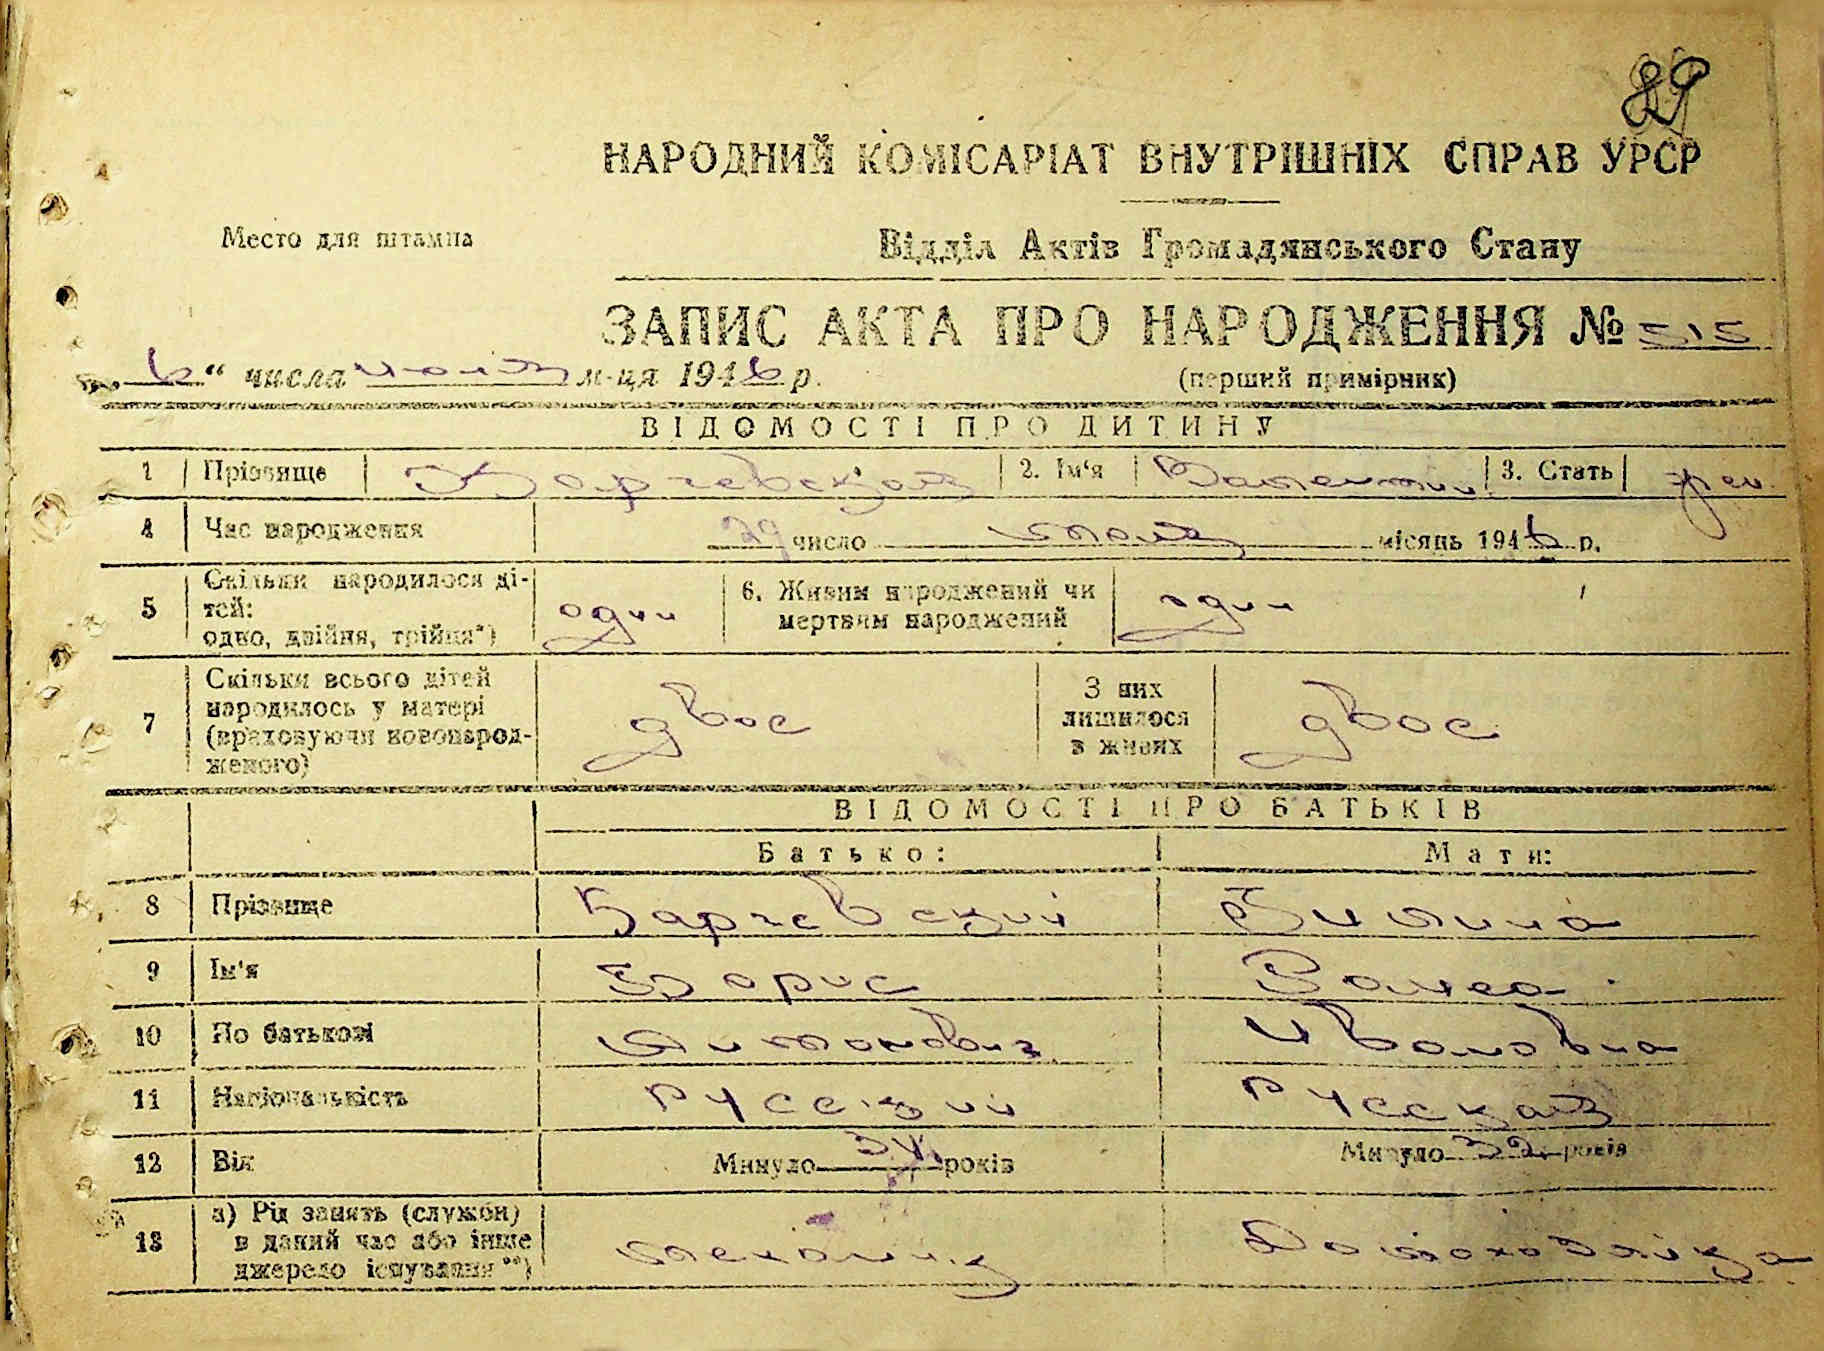 89
НАРОДНИЙ КОМІСАРІАТ ВНУТРІШНІХ СПРАВ УРСР
Место для штампа
Відділ Актів Громадянського Стану
ЗАПИС АКТА ПРО НАРОДЖЕННЯ № 515
„6“ числа м-ця 1946 р.
(перший примірник)
ВІДОМОСТІ ПРО ДИТИНУ
1 Прізвище Барчевская 2. Ім'я 3. Стать жен.
4 Час народження 29 число місяць 1946 р.
5 Скільки народилося ді-
тей:
одно, двійня, трійця*) один 6. Живим народжений чи
мертвим народжений один
7 Скільки всього дітей
народилось у матері
(враховуючи новонарод-
женого) двое З них
лишилося
в живих двое
ВІДОМОСТІ ПРО БАТЬКІВ
Батько: Мати:
8 Прізвище Барчевский
9 Ім'я Борис
10 По батькові Антонович Ивановна
11 Національність русский русская
12 Вік Минуло 34 років Минуло 32 років
13 а) Рід занять (служби)
в даний час або інше
джерело існування**) механик Домохозяйка